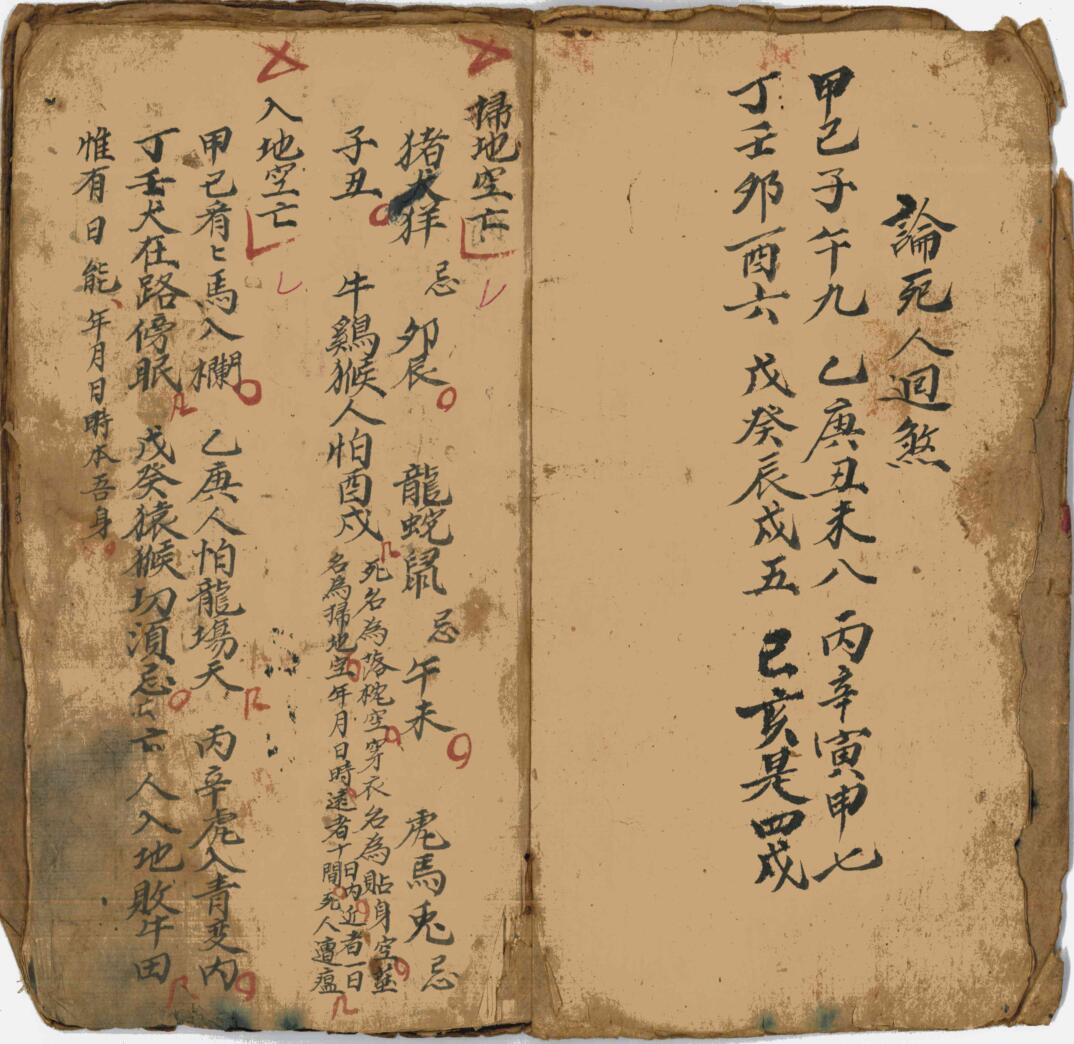 論死人迴煞
甲己子午九 乙庚丑未八 丙辛寅申七
丁壬卯酉六 戊癸辰戌五 己亥是四戍
掃地空亡
猪犬羊 忌 卯辰 龍蛇鼠 忌午未 虎馬兔忌
子丑 牛鷄猴人怕酉戍 死名為落枕空穿衣名為貼身空並
名為掃地空年月日時遠者十日内近者一日間死人遭瘟
入地空亡
甲己肴〻馬入欄 乙庚人怕龍塲天 丙辛虎入青交内
丁壬犬在路傍眠 戊癸猿猴切須忌 亡人入地敗牛田
惟有日能年月日時本吾身